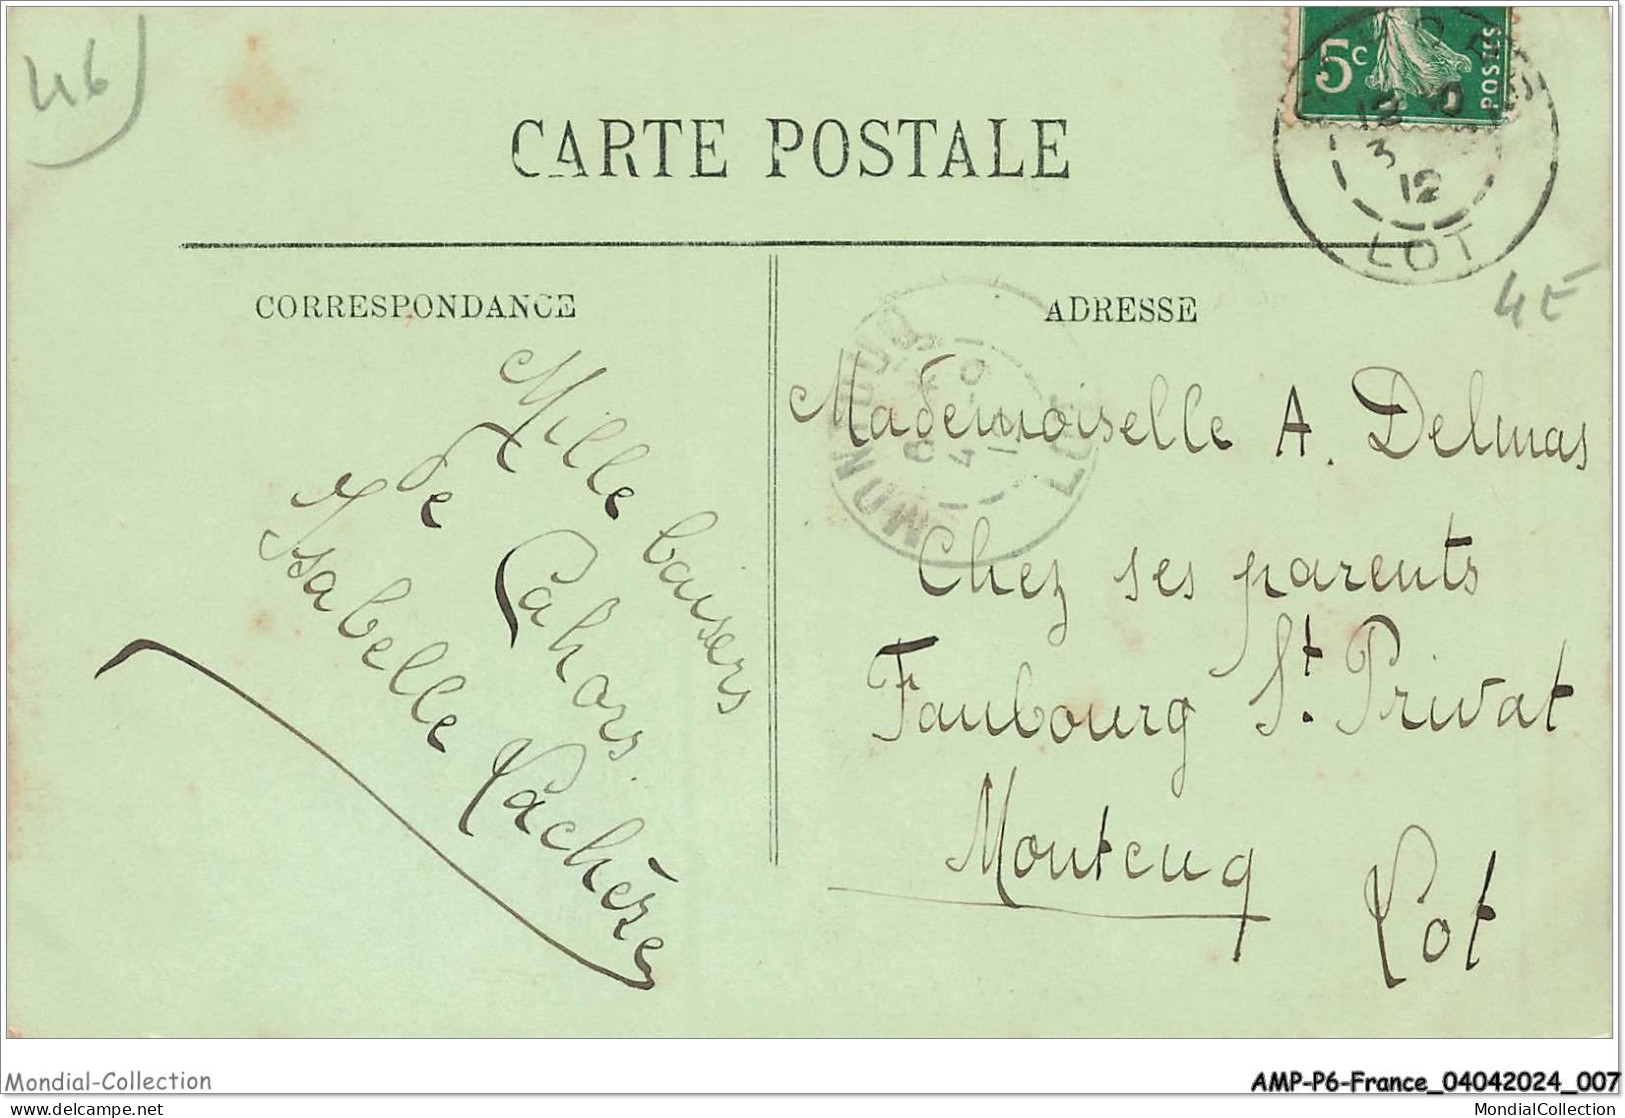 46
5c
POSTES
12
3
12
LOT
CARTE POSTALE
CORRESPONDANCE
ADRESSE
4E
MONTCUQ
LOT
Mille baisers
de Cahors.
Isabelle Lachèze
Mademoiselle A. Delmas
Chez ses parents
Faubourg St. Privat
Montcuq
Lot
Mondial-Collection
AMP-P6-France_04042024_007
delcampe.net
MondialCollection